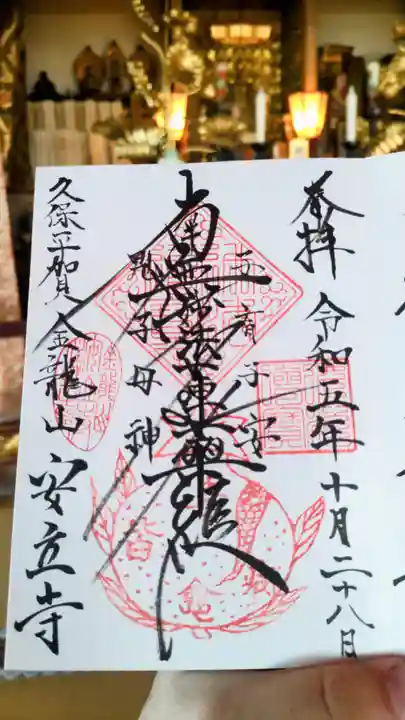 奉拝 令和五年十月二十八日
立育子宝
南無妙法蓮華経
鬼子母神
久保正賀 金龍山 安立寺